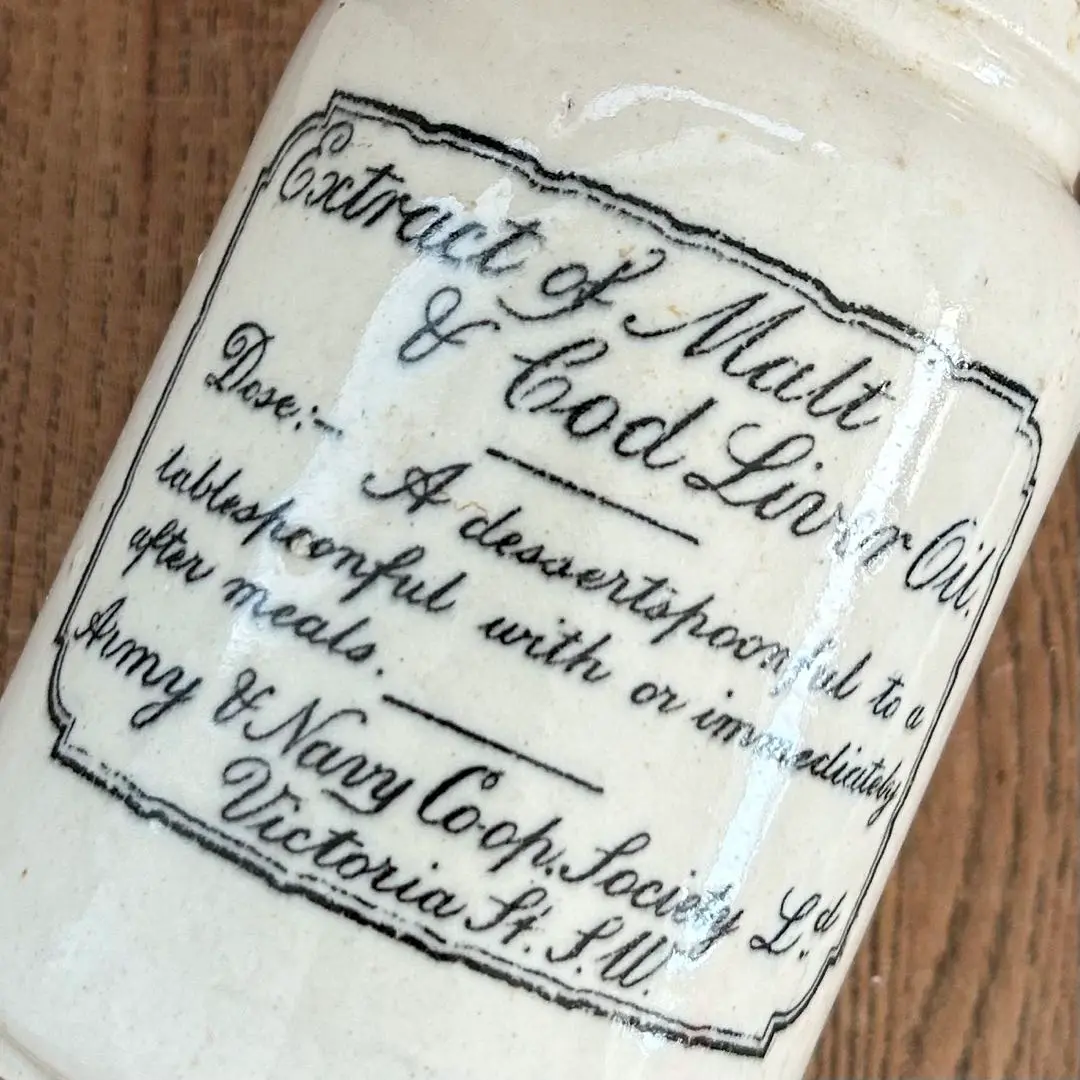 Extract of Malt
& Cod Liver Oil.
Dose:- A dessertspoonful to a
tablespoonful with or immediately
after meals.
Army & Navy Co-op. Society Ld.
Victoria St. S.W.